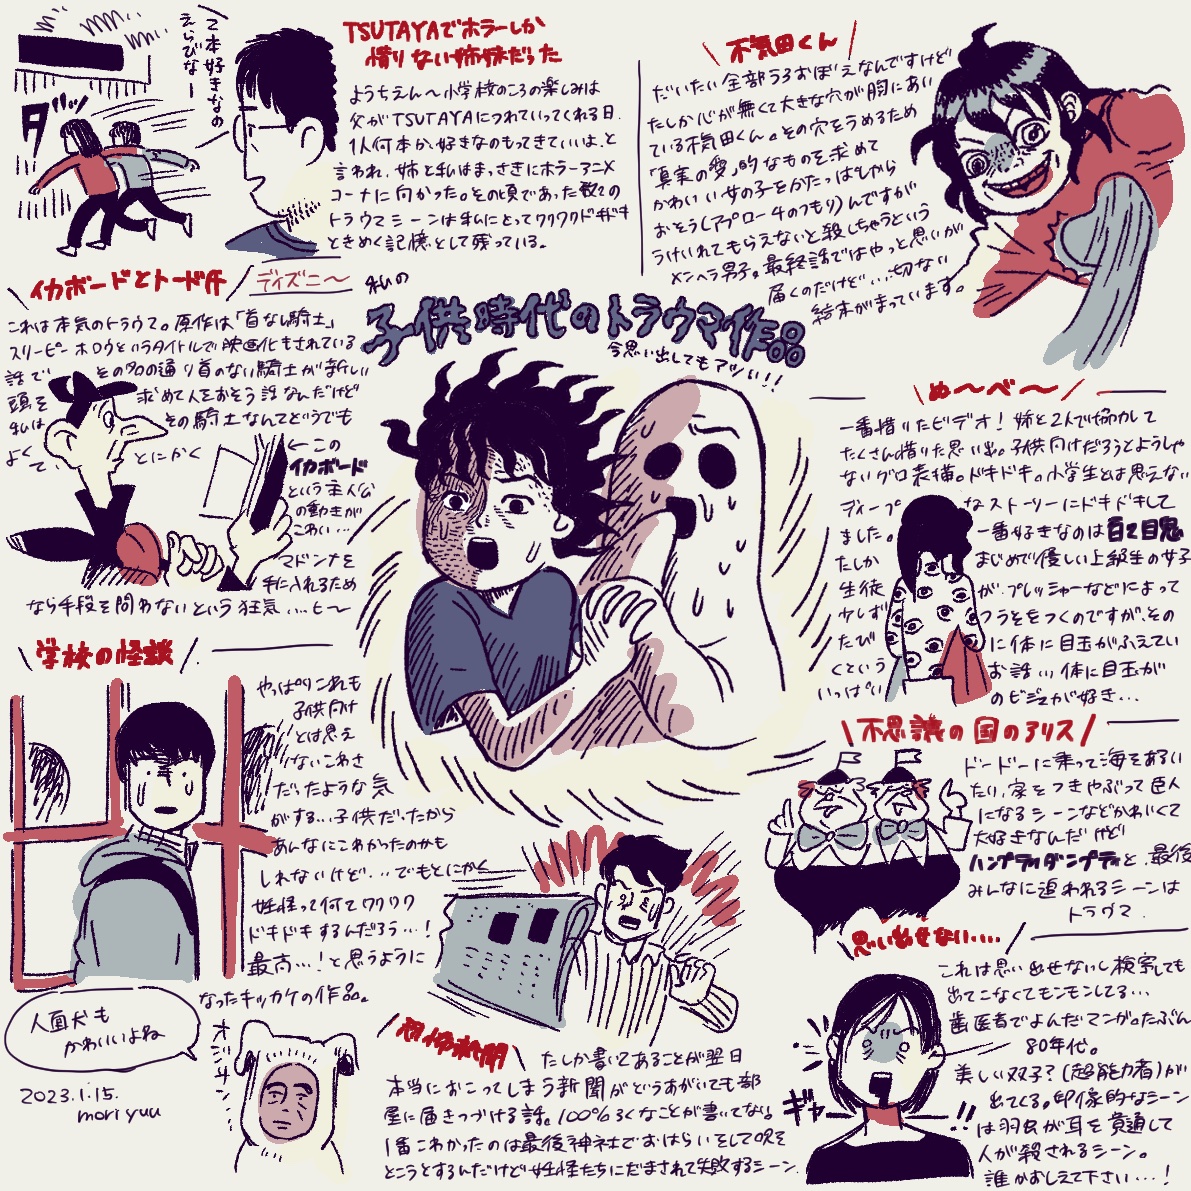 2本好きなの
えらびなー
ダッ
TSUTAYAでホラーしか
借りない姉妹だった
ようちえん〜小学校のころの楽しみは
父がTSUTAYAにつれていってくれる日。
1人何本か、好きなのもってきていいよ、と
言われ、姉と私はまっさきにホラーアニメ
コーナに向かった。その頃であった数々の
トラウマシーンは私にとってワクワクドキドキ
ときめく記憶として残っている。
不気田くん
だいたい全部うろおぼえなんですけど
たしか心が無くて大きな穴が胸にあい
ている不気田くん。その穴をうめるため
「真実の愛」的なものを求めて
かわいい女の子をかたっぱしから
おそう(アプローチのつもり)んですが
うけいれてもらえないと殺しちゃうという
メンヘラ男子。最終話ではやっと思いが
届くのだけど…切ない
結末がまっています。
イカボードとトード氏
ディズニー〜
これは本気のトラウマ。原作は「首なし騎士」
スリーピーホロウというタイトルで映画化もされている
話で、その名の通り首のない騎士が新しい
頭を求めて人をおそう話なんだけど
私はその騎士なんてどうでも
よくて、とにかく
←この
イカボード
という主人公
の動きが
こわい…
マドンナを
手に入れるため
なら手段を問わないという狂気…ヒ〜
私の
子供時代のトラウマ作品
今思い出してもアツい!!
ぬ〜べ〜
一番借りたビデオ!姉と2人で協力して
たくさん借りた思い出。子供向けだろうとようしゃ
ないグロ表現。ドキドキ。小学生とは思えない
ディープなストーリーにドキドキして
ました。一番好きなのは百々目鬼
たしかまじめで優しい上級生の女子
生徒が、プレッシャーなどによって
少しずつウソをつくのですが、その
たびに体に目玉がふえてい
くというお話…体に目玉が
いっぱいのビジュが好き…
学校の怪談
やっぱりこれも
子供向け
とは思え
ないこわさ
だったような気
がする…子供だったから
あんなにこわかったのかも
しれないけど…でもとにかく
妖怪って何てワクワク
ドキドキするんだろう…!
最高…!と思うように
なったキッカケの作品。
人面犬も
かわいいよね
オジサン…
2023.1.15.
moriyuu
不思議の国のアリス
ドードーに乗って海をあるい
たり、家をつきやぶって巨人
になるシーンなどかわいくて
大好きなんだけど
ハンプティダンプティと、最後
みんなに追われるシーンは
トラウマ.
恐怖新聞
たしか書いてあることが翌日
本当におこってしまう新聞がどうあがいても部
屋に届きつづける話。100%ろくなことが書いてない
1番こわかったのは最後神社でおはらいをして呪を
とこうとするんだけど妖怪たちにだまされて失敗するシーン.
思い出せない….
これは思い出せないし検索しても
出てこなくてモンモンしてる…
歯医者でよんだマンガ。たぶん
80年代。
美しい双子?(超能力者)が
出てくる。印象的なシーン
は羽虫が耳を貫通して
人が殺されるシーン。
誰かおしえて下さい…!
ギャー!!